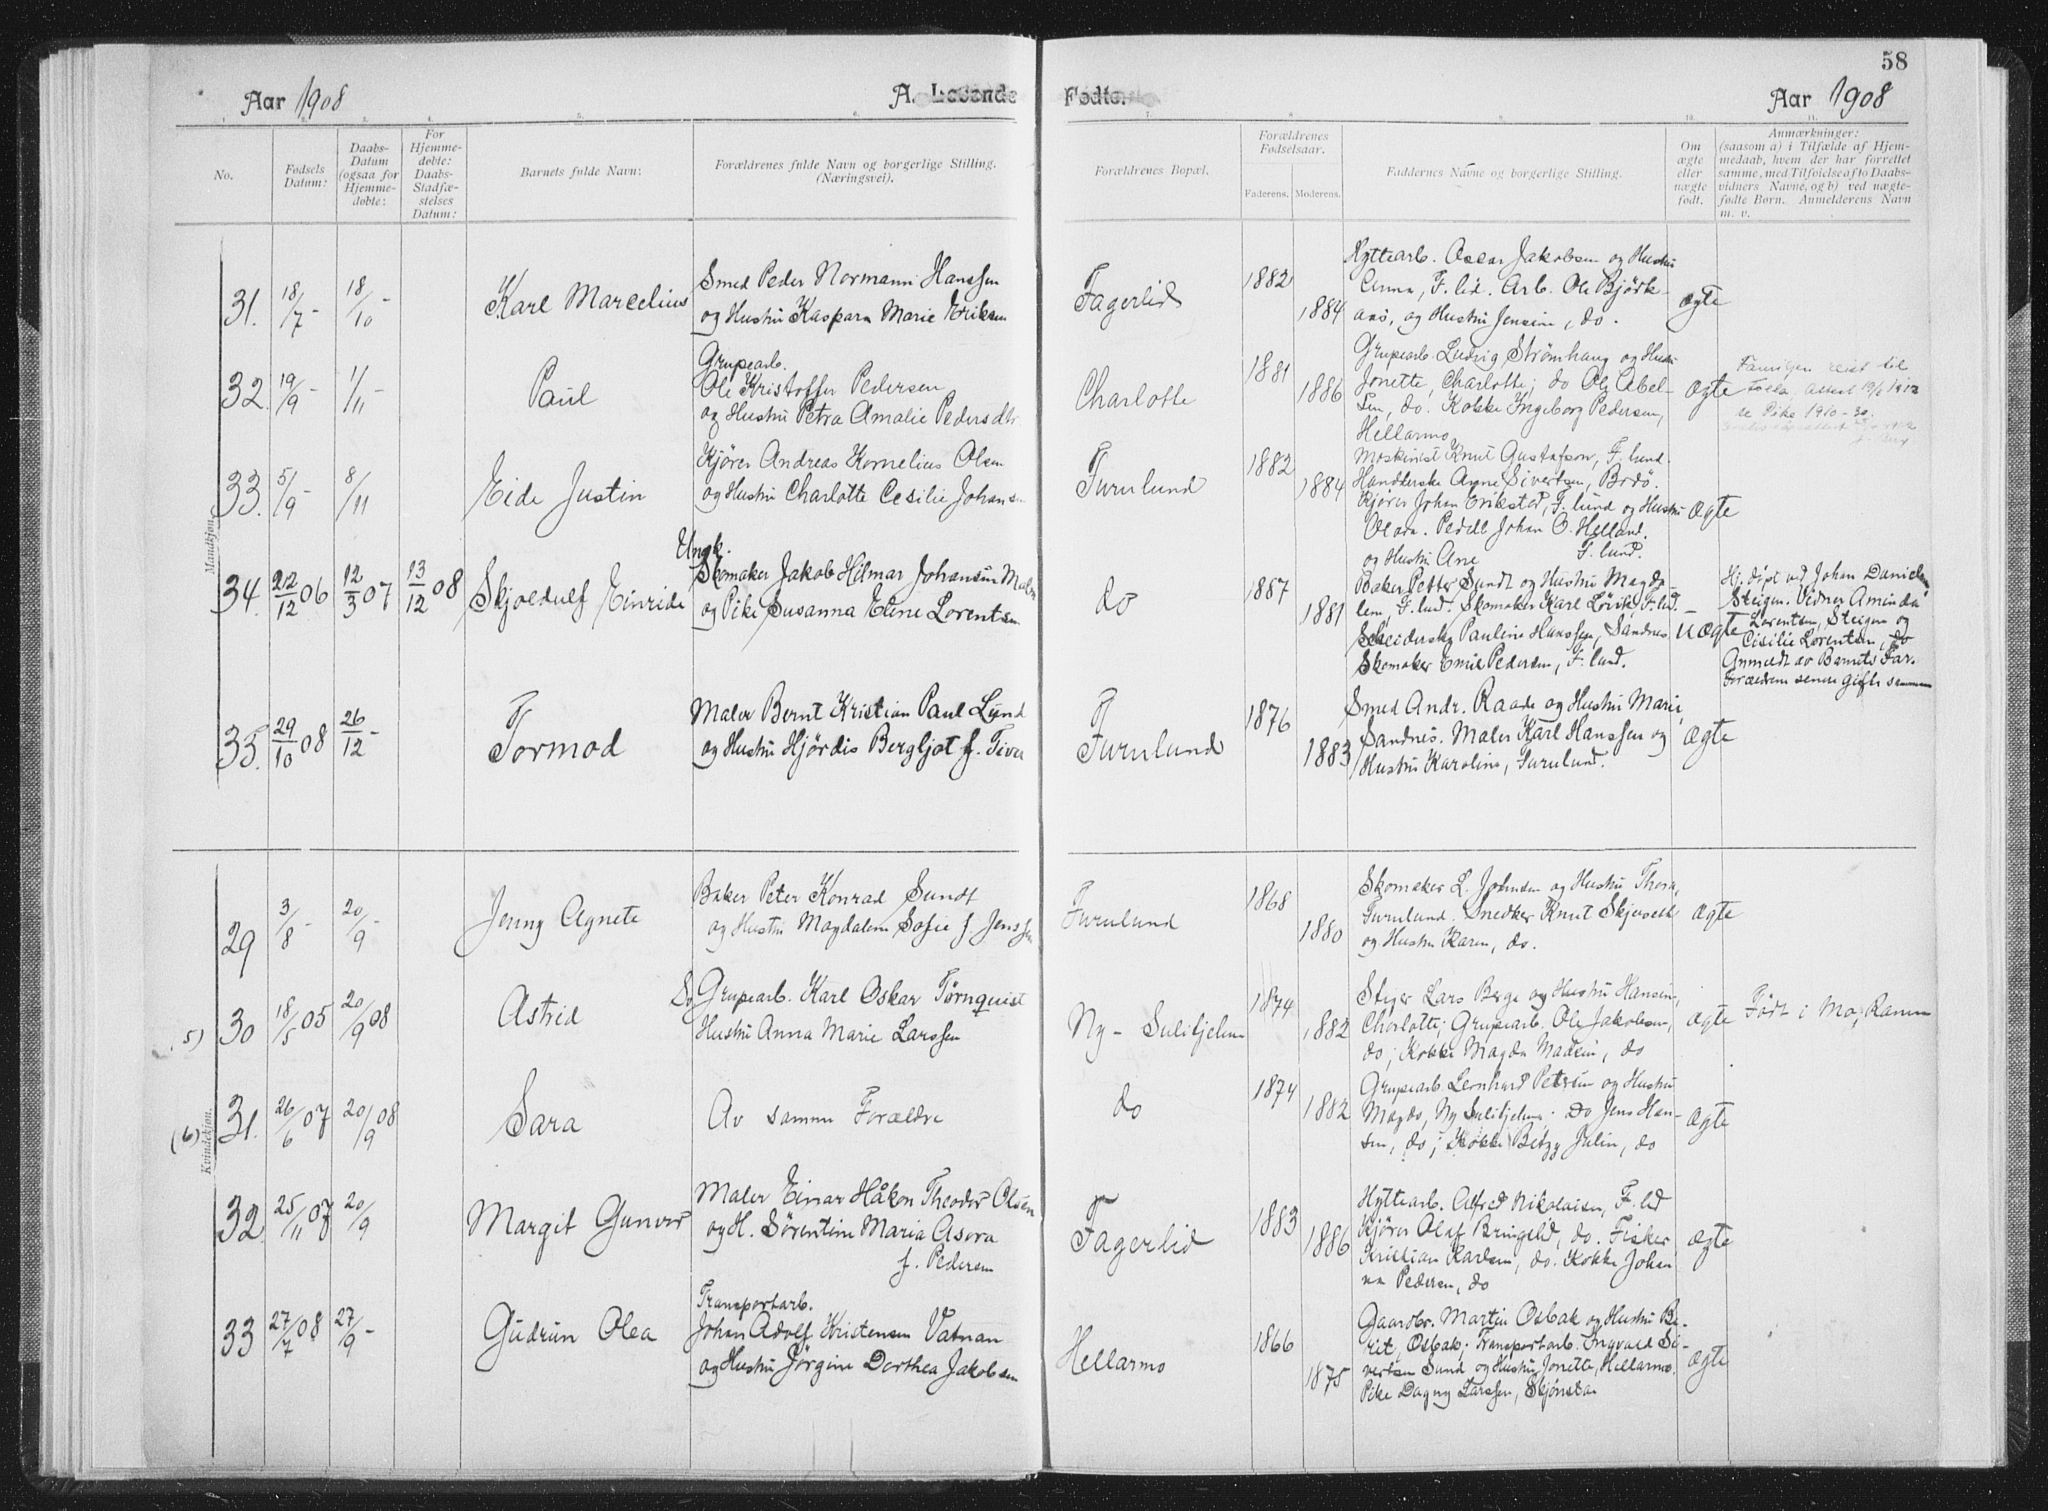 58
Aar 1908
A. Levende Fødte.
Aar 1908
No.
Fødsels Datum:
Daabs-Datum (ogsaa for Hjemme-døbte:
For Hjemme-døbte: Daabs-Stadfæ-stelses Datum:
Barnets fulde Navn:
Forældrenes fulde Navn og borgerlige Stilling.
(Næringsvei).
Forældrenes Bopæl.
Forældrenes Fødselsaar.
Faderens. Moderens.
Faddernes Navne og borgerlige Stilling.
Om ægte eller uægte født.
Anmærkninger:
(saasom a) i Tilfælde af Hjem-
medaab, hvem der har forrettet
samme, med Tilføielse af to Daabs-
vidners Navne, og b) ved uægte-
fødte Børn. Anmelderens Navn
m. v.
Mandkjøn.
31. 18/7 - 18/10 - Karl Marcelius
Smed Peder Normann Hanssen
og Hustru Kaspara Marie Eriksen
Fagerlid
1882
1884
Hyttearb. Oscar Jakobsen og Hustru
Anna, F.lid. Arb. Ole Bjørk-
aas, og Hustru Jensine, do.
Ægte
32. 19/9 - 1/11 - Paul
Grupearb.
Ole Kristoffer Pedersen
og Hustru Petra Amalie Pedersdtr
Charlotte
1881
1886
Grupearb. Ludvig Strømhaug og Hustru
Jonette, Charlotte; do Ole Abel-
sen, do. Kokke Ingeborg Pedersen,
Hellarmo
Ægte
Familjen reist til
se Pike 1910-30.
33. 5/9 - 8/11 Eide Justin
Kjører Andreas Kornelius Olsen
og Hustru Charlotte Cesilie Johans
Furulund
1882
1884
Maskinist Knut Gustafson, F.lund.
Handlerske Anne Sivertsen, Bodø.
Kjører Johan Erikstad, F.lund og Hustru
Olava. Pedell Johan O. Helland.
og Hustru Ane F.lund.
Ægte
34. 22/12 06 12/3 07 13/12 08 Skjoldulf Einride
Ungk.
Skomaker Jakob Hilmar Johansen Malm
og Pike Susanna Eline Lorentsen
do
1887
1881
Baker Petter Sundt og Hustru Magda-
lena, F.lund. Skomaker Karl Løvik, F.lund. -
Pauline Hanssen, Sandnes
Skomaker Emil Pedersen, F.lund.
Uægte
Hj. døpt ved Johan Danielsen
Steigen. Vidner Aminda
Lorentsen, Steigen og
Cisilie Lorentsen, do
Anmeldt av Barnets Far.
Forældrene senere gifte sammen
35. 29/10 08 26/12 - Tormod
Maler Bernt Kristian Paul Lund
og Hustru Hjørdis Bergljot f. Tiver
Furulund
1876
1883
Smed Andr. Raade og Hustru Marie,
Sandnes. Maler Karl Hanssen og
Hustru Karoline, Furulund.
Ægte
Kvindekjøn.
29 3/8 - 20/9 - Jenny Agnete
Baker Peter Konrad Sundt
og Hustru Magdalena Sofie f. Jenssen
Furulund
1868
1880
Skomaker L. Johnsen og Hustru Thora,
Furulund. Snedker Knut Skjevoll
og Hustru Karen, do.
Ægte
(5) 30 18/5 05 20/9 08 Astrid
Grupearb. Karl Oskar Törnquist
Hustru Anna Marie Larssen
Ny-Sulitjelma
1874
1882
Stiger Lars Berge og Hustru Hansine,
Charlotte; Grupearb. Ole Jakobsen,
do; Kokke Magda Madsen, do
Ægte
Født i Mo, Ranen
(6) 31. 26/6 07 20/9 08 Sara
Av samme Forældre
do
1874
1882
Grupearb. Lernhard Petersen og Hustru
Magda, Ny Sulitjelma. do Jens Han-
sen, do; Kokke Betzy Julin, do
Ægte
32 25/11 07 20/9 Margit Gunvor
Maler Einar Håkon Theodor Olsen
og H. Sørentine Maria Asora
f. Pedersen
Fagerlid
1883
1886
Hyttearb. Alfred Nikolaisen, F.lid
Kjører Olaf Bringslid, do. Fisker
Kristian Karlsen, do. Kokke Johan
na Pedersen, do
Ægte
33 27/7 08 27/9 - Gudrun Olea
Transportarb.
Johan Adolf Kristensen Vatnan
og Hustru Jørgine Dorthea Jakobsen
Hellarmo
1866
1875
Gaardbr. Martin Osbak og Hustru Be-
rit, Osbak; Transportarb. Ingvald Si-
vertsen Sund og Hustru Jonette, Hellarmo.
Pike Dagny Larssen, Skjønsta
Ægte